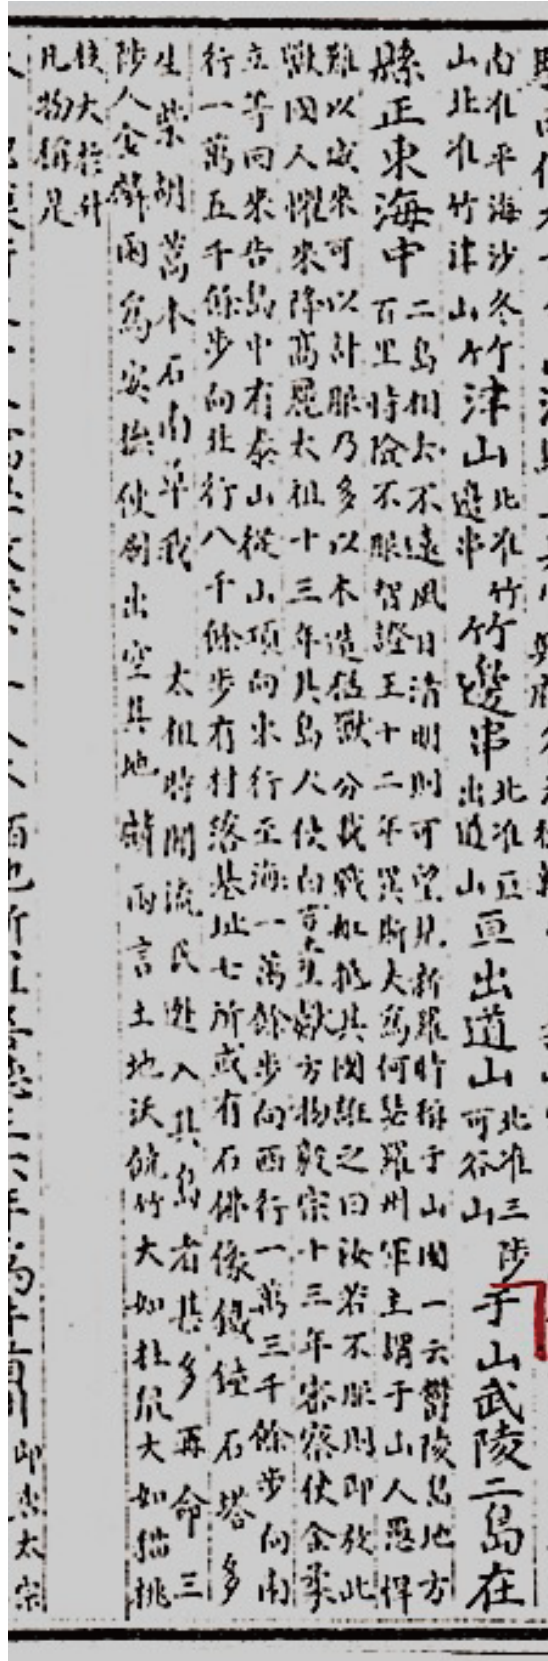 南准平海沙冬
山北准竹津山
竹津山
北准竹
邊串
竹邊串
北准亘
出道山
亘出道山
北准三陟
可谷山
于山武陵二島在
縣正東海中
二島相去不遠風日清明則可望見新羅時稱于山國一云鬱陵島地方
百里恃險不服智證王十二年異斯夫爲何瑟羅州軍主謂于山人愚悍
難以威來可以計服乃多以木造猛獸分載戰船抵其國誑之曰汝若不服則即放此
獸國人懼來降高麗太祖十三年其島人使白吉土豆獻方物毅宗十三年審察使金柔
立等回來告島中有泰山從山頂向東行至海一萬餘步向西行一萬三千餘步向南
行一萬五千餘步向北行八千餘步有村落基址七所或有石佛像鐵鍾石塔多
生柴胡蒿本石南草我 太祖時聞流民逃入其島者甚多再命三
陟人金麟雨爲安撫使刷出空其地麟雨言土地沃饒竹大如杠鼠大如猫桃
核大於升
凡物稱是